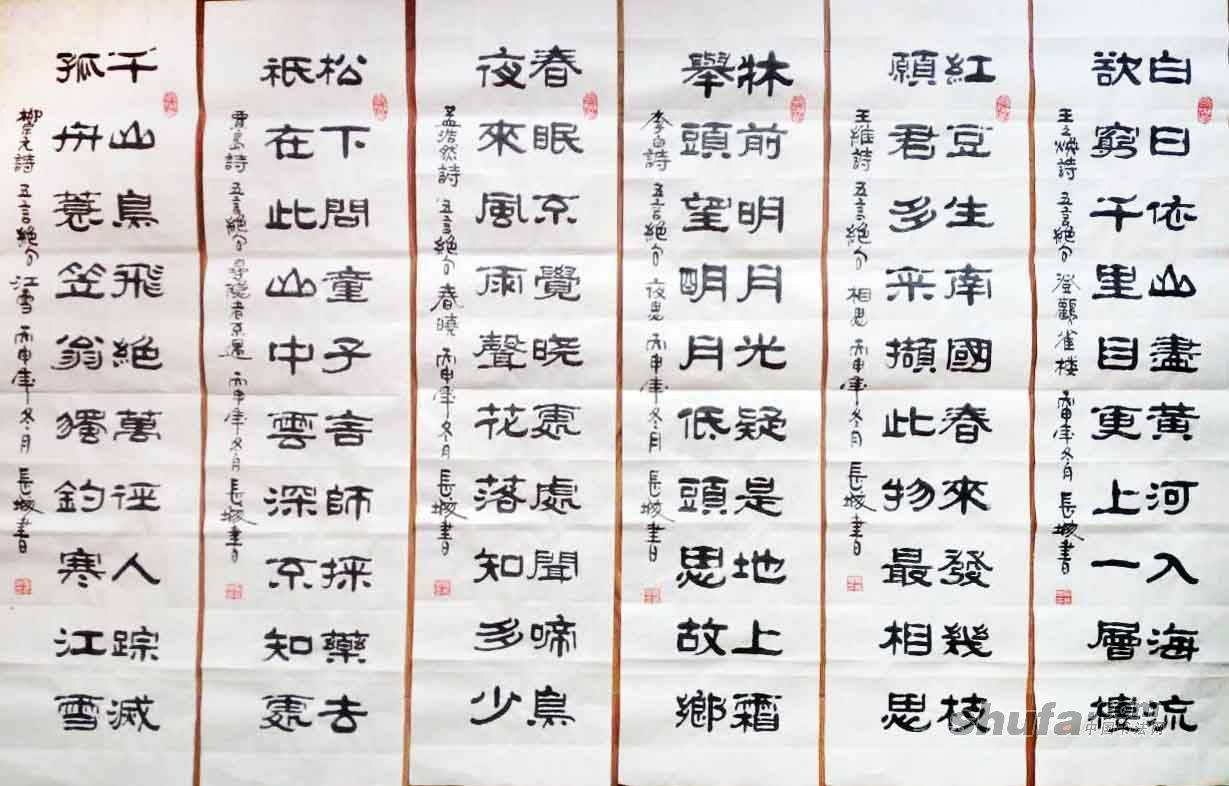 白日依山盡黃河入海流
欲窮千里目更上一層樓
王之煥詩 五言絕句 登鸛雀楼 丙申年冬月 長 書
紅豆生南國春來發幾枝
願君多采擷此物最相思
王維詩 五言絕句 相思 丙申年冬月 長 書
牀前明月光疑是地上霜
舉頭望明月低頭思故鄉
李白詩 五言絕句 夜思 丙申年冬月 長 書
春眠不覺曉處處聞啼鳥
夜來風雨聲花落知多少
孟浩然詩 五言絕句 春曉 丙申年冬月 長 書
松下問童子言師採藥去
祇在此山中雲深不知處
賈島詩 五言絕句 尋隱者不遇 丙申年冬月 長 書
千山鳥飛絕萬徑人踪滅
孤舟蓑笠翁獨釣寒江雪
柳元詩 五言絕句 江雪 丙申年冬月 長 書
shufa
中国书法网